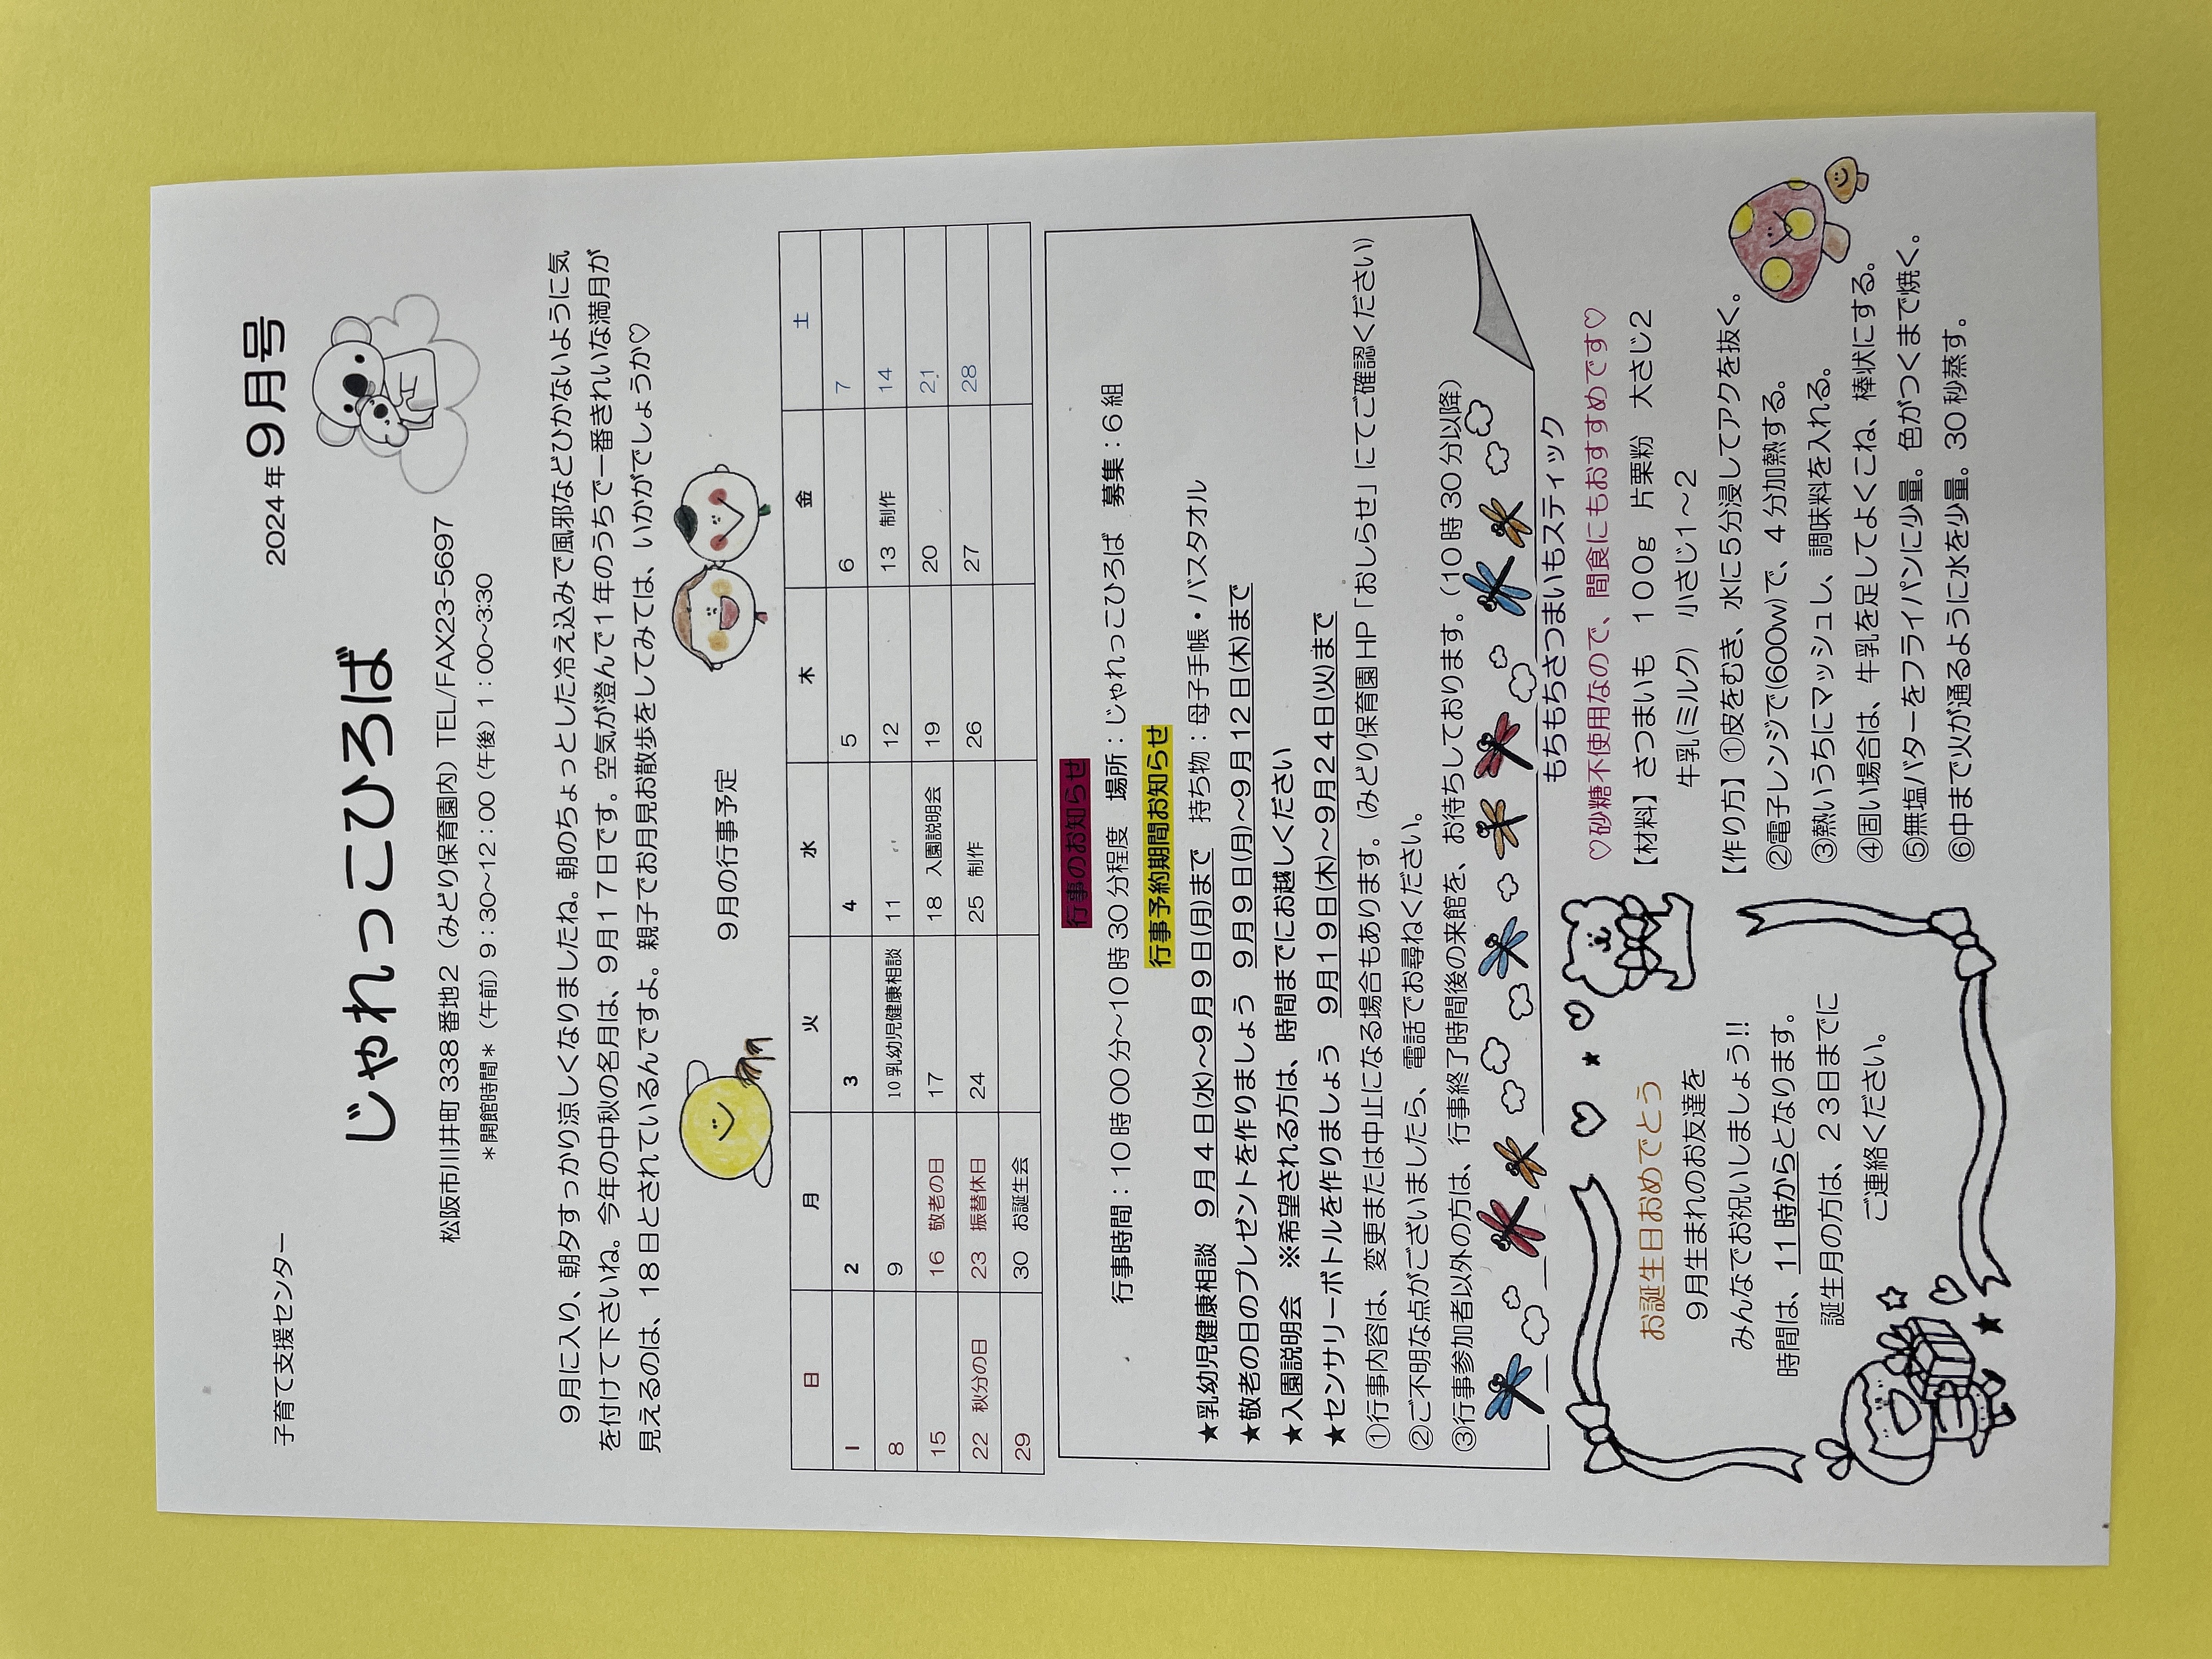 子育て支援センター
2024年9月号
じゃれっこひろば
松阪市川井町338番地2（みどり保育園内）TEL/FAX23-5697
＊開館時間＊（午前）9：30～12：00（午後）1：00～3:30
9月に入り、朝夕すっかり涼しくなりましたね。朝のちょっとした冷え込みで風邪などひかないように気
を付けて下さいね。今年の中秋の名月は、9月17日です。空気が澄んで1年のうちで一番きれいな満月が
見えるのは、18日とされているんですよ。親子でお月見お散歩をしてみては、いかがでしょうか♡
9月の行事予定
日 月 火 水 木 金 土
1 2 3 4 5 6 7
8 9 10 乳幼児健康相談 11 12 13 制作 14
15 16 敬老の日 17 18 入園説明会 19 20 21
22 秋分の日 23 振替休日 24 25 制作 26 27 28
29 30 お誕生会
行事のお知らせ
行事時間：10時00分～10時30分程度 場所：じゃれっこひろば 募集：6組
行事予約期間お知らせ
★乳幼児健康相談 9月4日(水)～9月9日(月)まで 持ち物：母子手帳・バスタオル
★敬老の日のプレゼントを作りましょう 9月9日(月)～9月12日(木)まで
★入園説明会 ※希望される方は、時間までにお越しください
★センサリーボトルを作りましょう 9月19日(木)～9月24日(火)まで
①行事内容は、変更または中止になる場合もあります。（みどり保育園HP「おしらせ」にてご確認ください）
②ご不明な点がございましたら、電話でお尋ねください。
③行事参加者以外の方は、行事終了時間後の来館を、お待ちしております。（10時30分以降）
お誕生日おめでとう
9月生まれのお友達を
みんなでお祝いしましょう!!
時間は、11時からとなります。
誕生月の方は、23日までに
ご連絡ください。
もちもちさつまいもスティック
♡砂糖不使用なので、間食にもおすすめです♡
【材料】さつまいも 100g 片栗粉 大さじ2
牛乳(ミルク) 小さじ1～2
【作り方】①皮をむき、水に5分浸してアクを抜く。
②電子レンジで(600w)で、4分加熱する。
③熱いうちにマッシュし、調味料を入れる。
④固い場合は、牛乳を足してよくこね、棒状にする。
⑤無塩バターをフライパンに少量。色がつくまで焼く。
⑥中まで火が通るように水を少量。30秒蒸す。